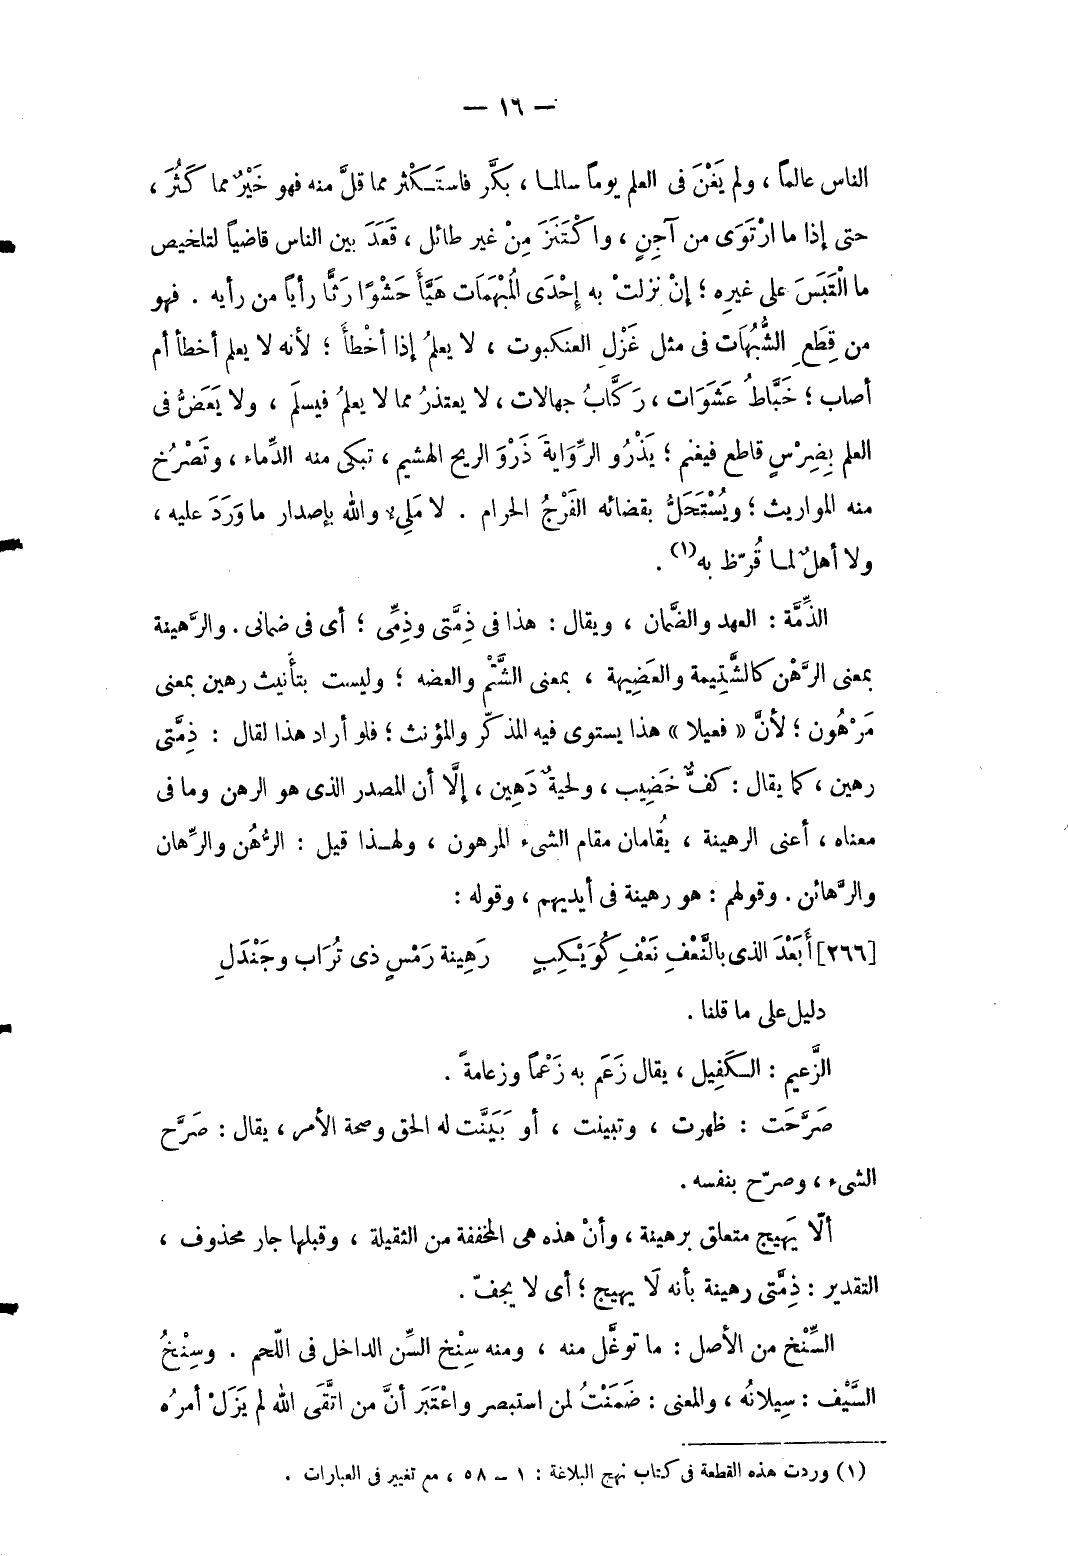 — ١٦ —
الناس عالماً ، ولم يَغْنَ فى العلم يوماً سالمــا ، بَكَّر فاستَـكْثر مما قلَّ منه فهو خَيْرٌ مما كَثُرَ ،
حتى إذا ما ارْتَوَى من آجِنٍ ، واكْتَنَزَ مِنْ غير طائل ، قَعَدَ بين الناس قاضياً لتلخيص
ما الْتَبَسَ على غيرِه ؛ إنْ نزلتْ به إِحْدَى المُبْهَمَات هَيَّأَ حَشْوًا رَثًّا رأياً من رأيه . فهو
من قِطَعِ الشُّبُهَات فى مثل غَزْلِ العنكبوت ، لا يعلمُ إذا أخْطأَ ؛ لأنه لا يعلم أخطأ أم
أصاب ؛ خَبَّاطُ عَشَوَات ، رَكَّابُ جهالات ، لا يعتذرُ مما لا يعلمُ فيسلَم ، ولا يَعَضُّ فى
العلم بِضِرْسٍ قاطع فيغنم ؛ يَذْرُو الرِّوَايةَ ذَرْوَ الريح الهشيم ، تبكى منه الدِّماء ، وتَصْرُخ
منه المواريث ؛ ويُسْتَحَلُّ بقضائه الفَرْجُ الحرام . لا مَلِىء والله بإصدار ما وَرَدَ عليه ،
ولا أهلٌ لمــا قُرّظ به(١) .
الذِّمَّة : العهد والضَّمان ، ويقال : هذا فى ذِمَّتى وذِمِّى ؛ أى فى ضمانى . والرَّهينة
بمعنى الرَّهْن كالشَّتِيمة والعَضِيهة ، بمعنى الشَّتْم والعضه ؛ وليست بتأنيث رهين بمعنى
مَرْهُون ؛ لأنَّ « فعيلا » هذا يستوى فيه المذكّر والمؤنث ؛ فلو أراد هذا لقال : ذِمَّتى
رهين ، كما يقال : كفٌّ خَضِيب ، ولحيةٌ دَهِين ، إلَّا أن المصدر الذى هو الرهن وما فى
معناه ، أعنى الرهينة ، يُقامان مقام الشىء المرهون ، ولهـذا قيل : الرُّهُن والرِّهان
والرَّهائن . وقولهم : هو رهينة فى أيديهم ، وقوله :
[٢٦٦] أَبَعْدَ الذى بالنَّعْفِ نَعْفِ كُوَيْكِبٍ رَهِينة رَمْسٍ ذى تُرَاب وجَنْدَلِ
دليل على ما قلنا .
الزَّعيم : الـكَفِيل ، يقال زَعَم به زَعْماً وزعامةً .
صَرَّحَت : ظهرت ، وتبينت ، أو بَيَنَّت له الحق وصحة الأمر ، يقال : صَرَّح
الشىء ، وصرّح بنفسه .
ألّا يَهيج متعلق برهينة ، وأنْ هذه هى المخففة من الثقيلة ، وقبلها جار محذوف ،
التقدير : ذِمَّتى رهينة بأنه لَا يهيج ؛ أى لا يجفّ .
السِّنْخ من الأصل : ما توغَّل منه ، ومنه سِنْخ السِّن الداخل فى اللّحم . وسِنْخُ
السَّيْف : سِيلانُه ، والمعنى : ضَمَنْتُ لمن استبصر واعْتَبَر أنَّ من اتَّقَى الله لم يَزَلْ أمرُه
(١) وردت هذه القطعة فى كتاب نهج البلاغة : ١ – ٥٨ ، مع تغيير فى العبارات .